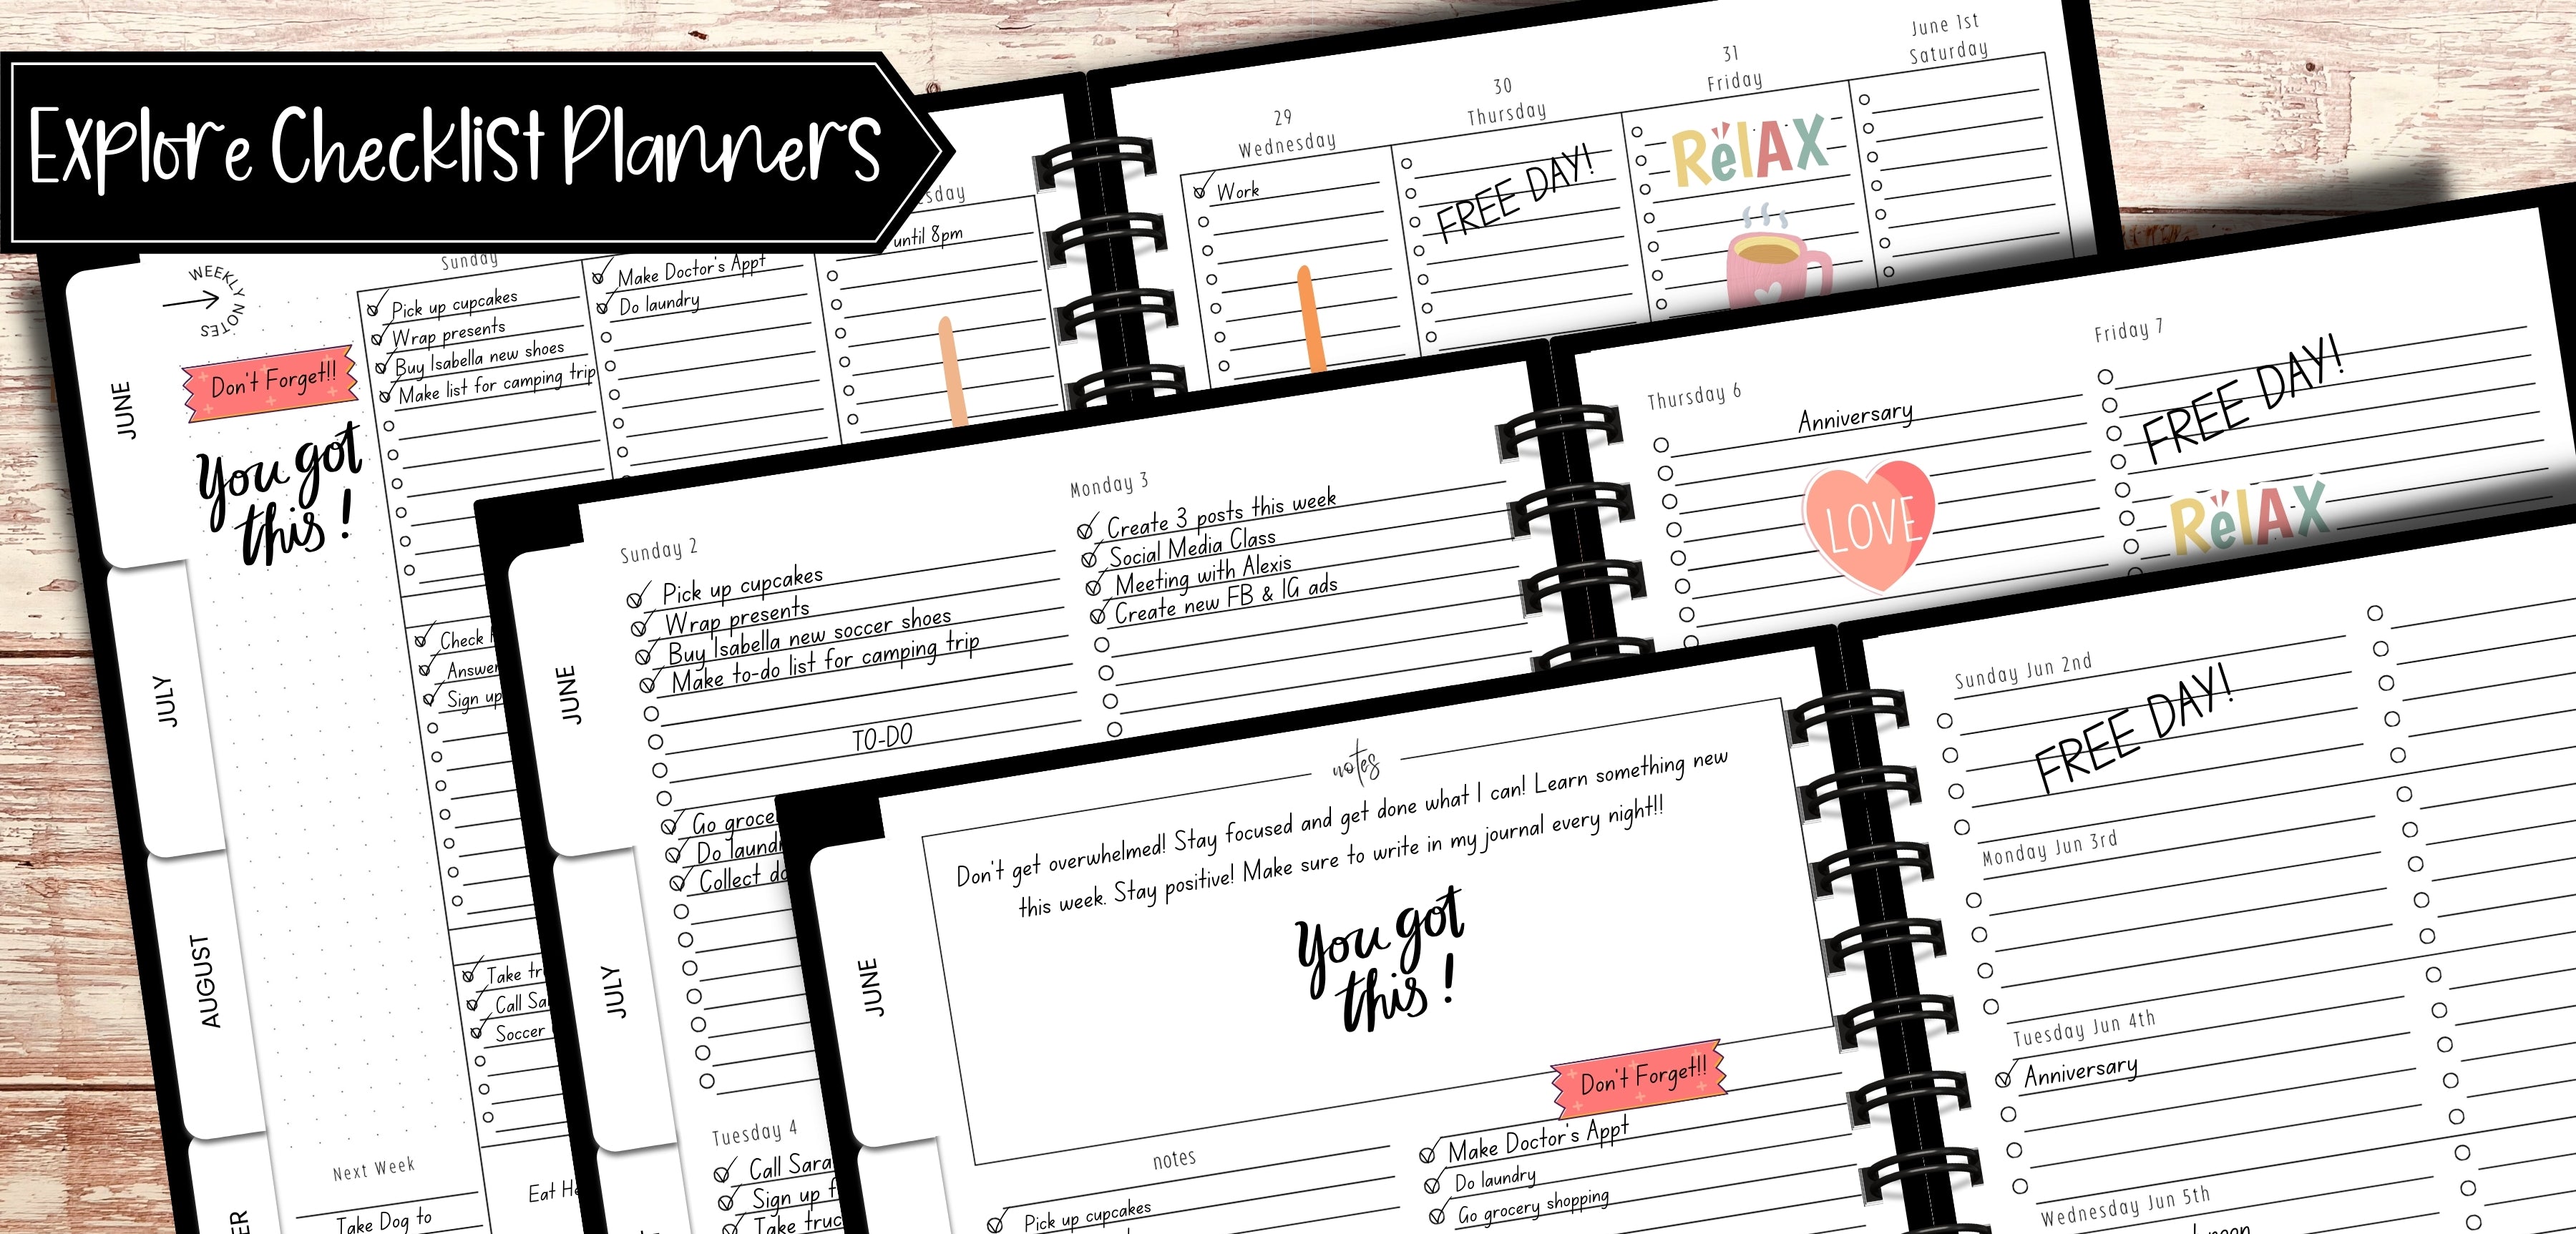 Explore Checklist Planners
JUNE
JULY
AUGUST
WEEKLY NOTES
Don't Forget!!
You got
this!
Next Week
Take Dog to
Sunday
Pick up cupcakes
Wrap presents
Buy Isabella new shoes
Make list for camping trip
Check
Sign up
Call
Soccer
Make Doctor's Appt
Do laundry
until 8pm
29
Wednesday
Work
30
Thursday
FREE DAY!
31
Friday
RelAX
June 1st
Saturday
JUNE
JULY
Sunday 2
Pick up cupcakes
Wrap presents
Buy Isabella new soccer shoes
Make to-do list for camping trip
TO-DO
Go
Do
Collect
Tuesday 4
Call Sara
Sign up
Take
Monday 3
Create 3 posts this week
Social Media Class
Meeting with Alexis
Create new FB & IG ads
Thursday 6
Anniversary
LOVE
Friday 7
FREE DAY!
RelAX
JUNE
notes
Don't get overwhelmed! Stay focused and get done what I can! Learn something new
this week. Stay positive! Make sure to write in my journal every night!!
You got
this!
Don't Forget!!
notes
Pick up cupcakes
Make Doctor's Appt
Do laundry
Go grocery shopping
Sunday Jun 2nd
FREE DAY!
Monday Jun 3rd
Tuesday Jun 4th
Anniversary
Wednesday Jun 5th